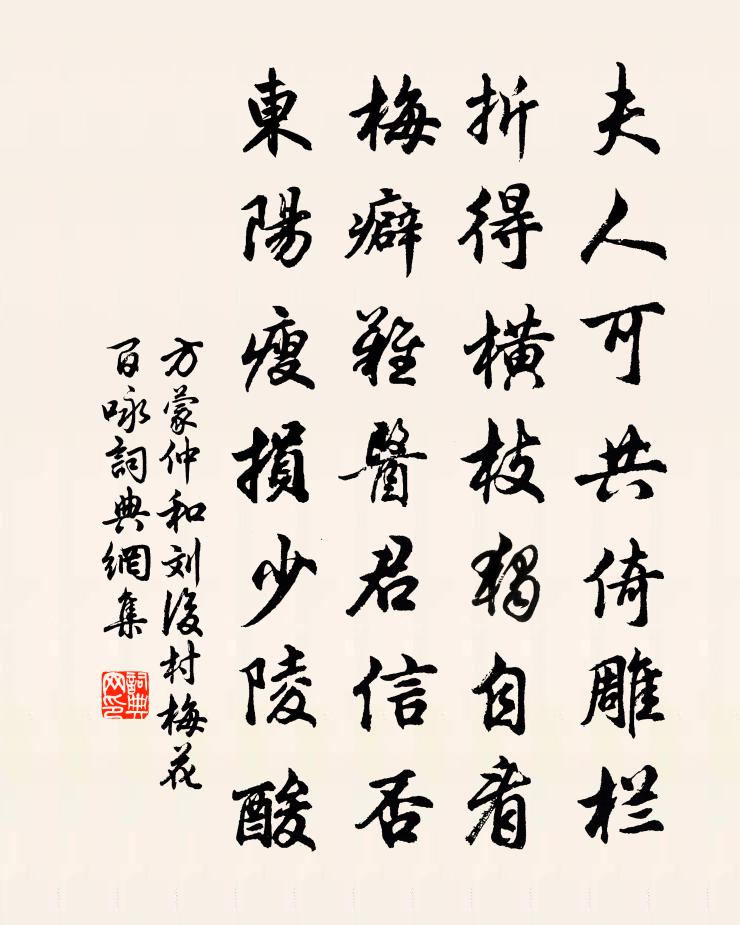 夫人可共倚雕栏
折得橫枝独自看
梅癖難醫君信否
東陽瘦損少陵酸
方蒙仲和刘後村梅花
百咏詞典網集
詞典网印